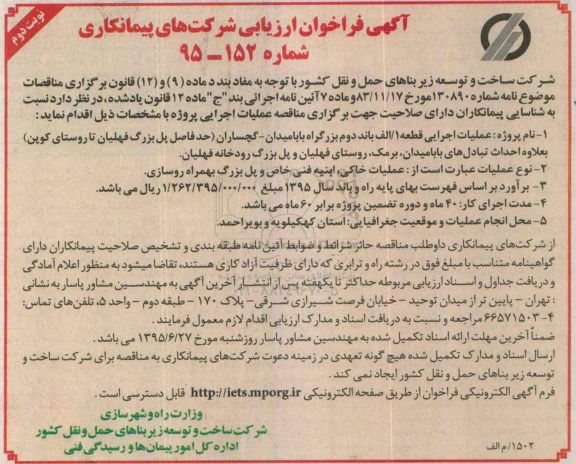 نوبت دوم
آگهی فراخوان ارزیابی شرکت‌های پیمانکاری
شماره ۱۵۲-۹۵
شرکت ساخت و توسعه زیربناهای حمل و نقل کشور با توجه به مفاد بند د ماده (۹) و (۱۲) قانون برگزاری مناقصات
موضوع نامه شماره ۱۳۰۸۹۰ مورخ ۸۳/۱۱/۱۷ و ماده ۷ آئین نامه اجرائی بند "ج" ماده ۱۲ قانون یادشده، در نظر دارد نسبت
به شناسایی پیمانکاران دارای صلاحیت جهت برگزاری مناقصه عملیات اجرایی پروژه با مشخصات ذیل اقدام نماید:
۱- نام پروژه: عملیات اجرایی قطعه ۱/الف باند دوم بزرگراه بابامیدان-گچساران (حدفاصل پل بزرگ فهلیان تا روستای کوپن)
بعلاوه احداث تبادل‌های بابامیدان، برمک، روستای فهلیان و پل بزرگ رودخانه فهلیان.
۲- نوع عملیات عبارت است از: عملیات خاکی، ابنیه فنی خاص و پل بزرگ بهمراه روسازی.
۳- برآورد بر اساس فهرست بهای پایه راه و باند سال ۱۳۹۵ مبلغ ۱/۲۶۲/۳۹۵/۰۰۰/۰۰۰ ریال می باشد.
۴- مدت اجرای کار: ۴۰ ماه و دوره تضمین پروژه برابر ۶۰ ماه می باشد.
۵- محل انجام عملیات و موقعیت جغرافیایی: استان کهکیلویه و بویراحمد.
از شرکت‌های پیمانکاری داوطلب مناقصه حائز شرائط و ضوابط آئین نامه طبقه بندی و تشخیص صلاحیت پیمانکاران دارای
گواهینامه متناسب با مبلغ فوق در رشته راه و ترابری که دارای ظرفیت آزاد کاری هستند، تقاضا میشود به منظور اعلام آمادگی
و دریافت جداول و اسناد ارزیابی مربوطه حداکثر تا یکهفته پس از انتشار آخرین آگهی به مهندسین مشاور پاسار به نشانی
: تهران - پایین تر از میدان توحید - خیابان فرصت شیرازی شرقی- پلاک ۱۷۰ - طبقه دوم - واحد ۵، تلفن‌های تماس:
۴-۶۶۵۷۱۵۰۳ مراجعه و نسبت به دریافت اسناد و مدارک ارزیابی اقدام لازم معمول فرمایند.
ضمناً آخرین مهلت ارائه اسناد تکمیل شده به مهندسین مشاور پاسار روز شنبه مورخ ۱۳۹۵/۶/۲۷ می باشد.
ارسال اسناد و مدارک تکمیل شده هیچ گونه تعهدی در زمینه دعوت شرکت‌های پیمانکاری به مناقصه برای شرکت ساخت و
توسعه زیربناهای حمل و نقل کشور ایجاد نمی کند.
فرم آگهی الکترونیکی فراخوان از طریق صفحه الکترونیکی http://iets.mporg.ir قابل دسترسی است.
وزارت راه و شهرسازی
شرکت ساخت و توسعه زیربناهای حمل و نقل کشور
اداره کل امور پیمان‌ها و رسیدگی فنی
۱۵۰۲/م الف